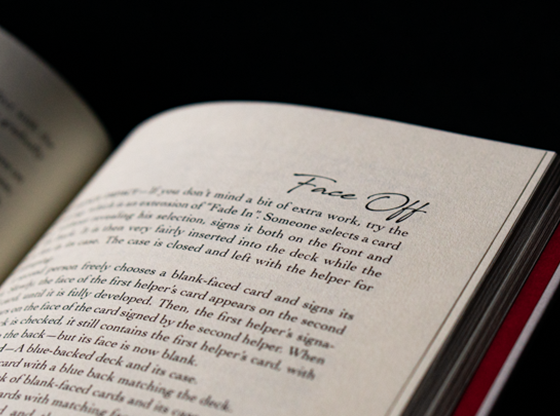 Face Off
—If you don't mind a bit of extra work, try the
which is an extension of "Fade In". Someone selects a card
revealing his selection, signs it both on the front and
back. It is then very fairly inserted into the deck while the
in its case. The case is closed and left with the helper for
second person freely chooses a blank-faced card and signs its
the face of the first helper's card appears on the second
until it is fully developed. Then, the first helper's signa-
on the face of the card signed by the second helper. When
is checked, it still contains the first helper's card, with
the back—but its face is now blank.
—A blue-backed deck and its case.
card with a blue back matching the deck.
of blank-faced cards and its
cards with matching